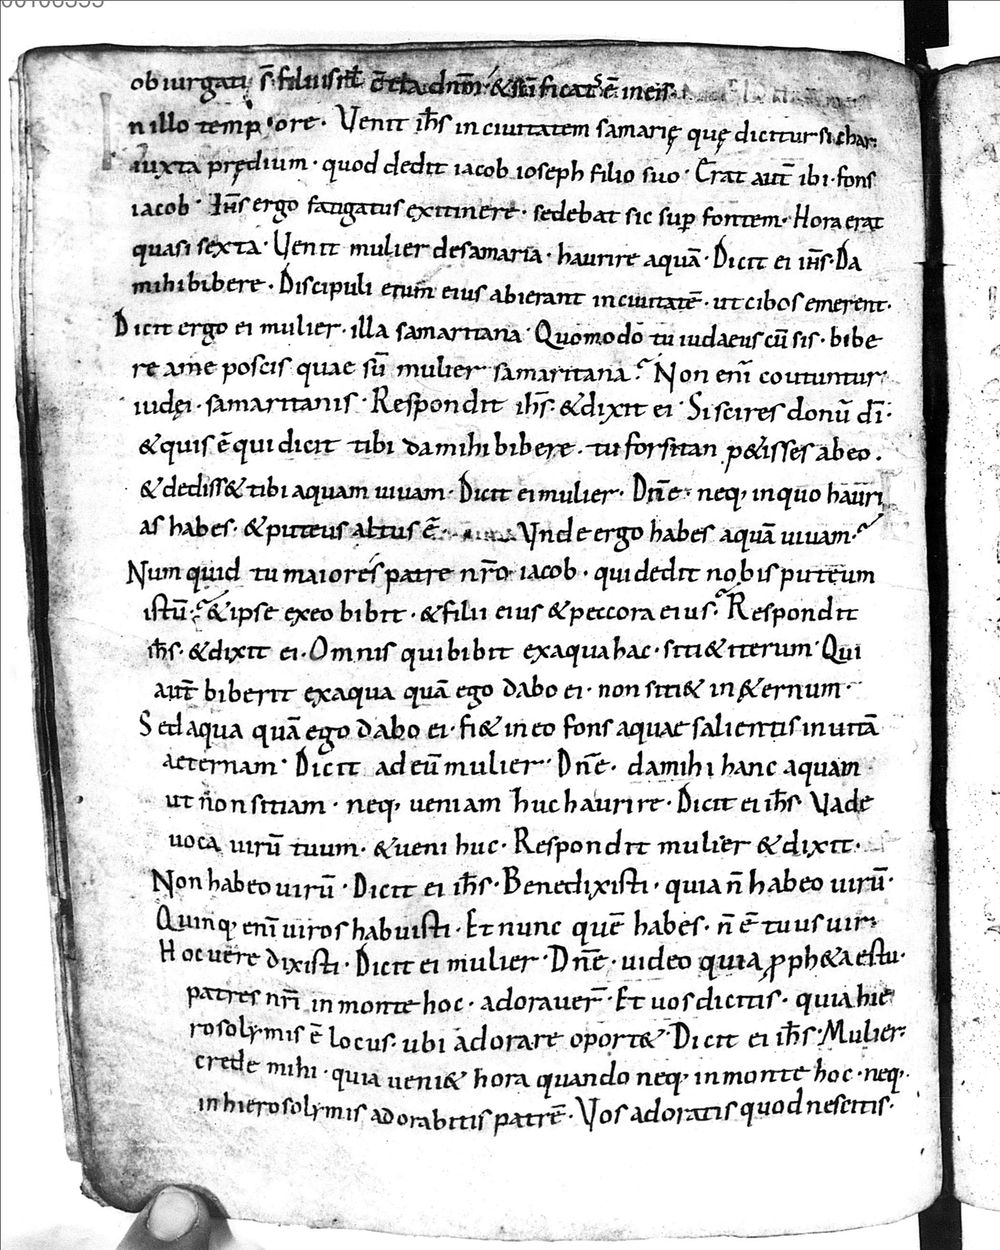 ob iurgati s̄ filii isrl̄ c̄tra dn̄m · & sc̄ificat᷒ ē in eis ·
In illo temp ore · Venit ih̄s in ciuitatem samarię quę dicitur sichar ·
iuxta prędium · quod dedit iacob ioseph filio suo · Erat aut̄ ibi · fons
iacob · Ih̄s ergo fatigatus ex itinere · sedebat sic sup̄ fontem · Hora erat
quasi sexta · Uenit mulier de samaria · haurire aquā · Dicit ei ih̄s · Da
mihi bibere · Discipuli enim̄ eius abierant in ciuitatē · ut cibos emerent ·
Dicit ergo ei mulier · illa samaritana · Quomodo tu iudaeus cū sis · bibe
re a me poscis quae sū mulier samaritana ? Non eni̅ coutuntur
iudęi · samaritanis · Respondit ih̄s · & dixit ei · Si scires donū dī ·
& quis ē qui dicit tibi da mihi bibere · tu forsitan p&isses ab eo .
& dediss& tibi aquam uiuam · Dicit ei mulier · Dn̄e · neq; in quo hauri
as habes · & puteus altus ē · Vnde ergo habes aquā uiuam ?
Num quid tu maior es patre nr̄o iacob · qui dedit nobis puteum
istū ? & ipse ex eo bibit · & filii eius & peccora eius ? Respondit
ih̄s · & dixit ei · Omnis qui bibit ex aqua hac · siti& iterum · Qui
aut̄ biberit ex aqua quā ego dabo ei · non siti& in &ernum ·
Sed aqua quā ego dabo ei · fi& in eo fons aquae salientis in uitā
aeternam · Dicit ad eū mulier · Dn̄e · da mihi hanc aquam
ut non sitiam · neq; ueniam huc haurire · Dicit ei ih̄s · Vade
uoca uirū tuum · & ueni huc · Respondit mulier & dixit ·
Non habeo uirū · Dicit ei ih̄s · Bene dixisti · quia n̄ habeo uirū ·
Quinq; eni̅ uiros habuisti · Et nunc quē habes · n̄ ē tuus uir ·
Hoc uere dixisti · Dicit ei mulier · Dn̄e · uideo quia p̱ph&a es tu ·
patres nr̄i in monte hoc · adorauer̄ · Et uos dicitis · quia hie
rosolymis ē locus · ubi adorare oport& · Dicit ei ih̄s · Mulier
crede mihi · quia ueni& hora quando neq; in monte hoc · neq;
in hierosolymis adorabitis patrē · Vos adoratis quod nescitis ·